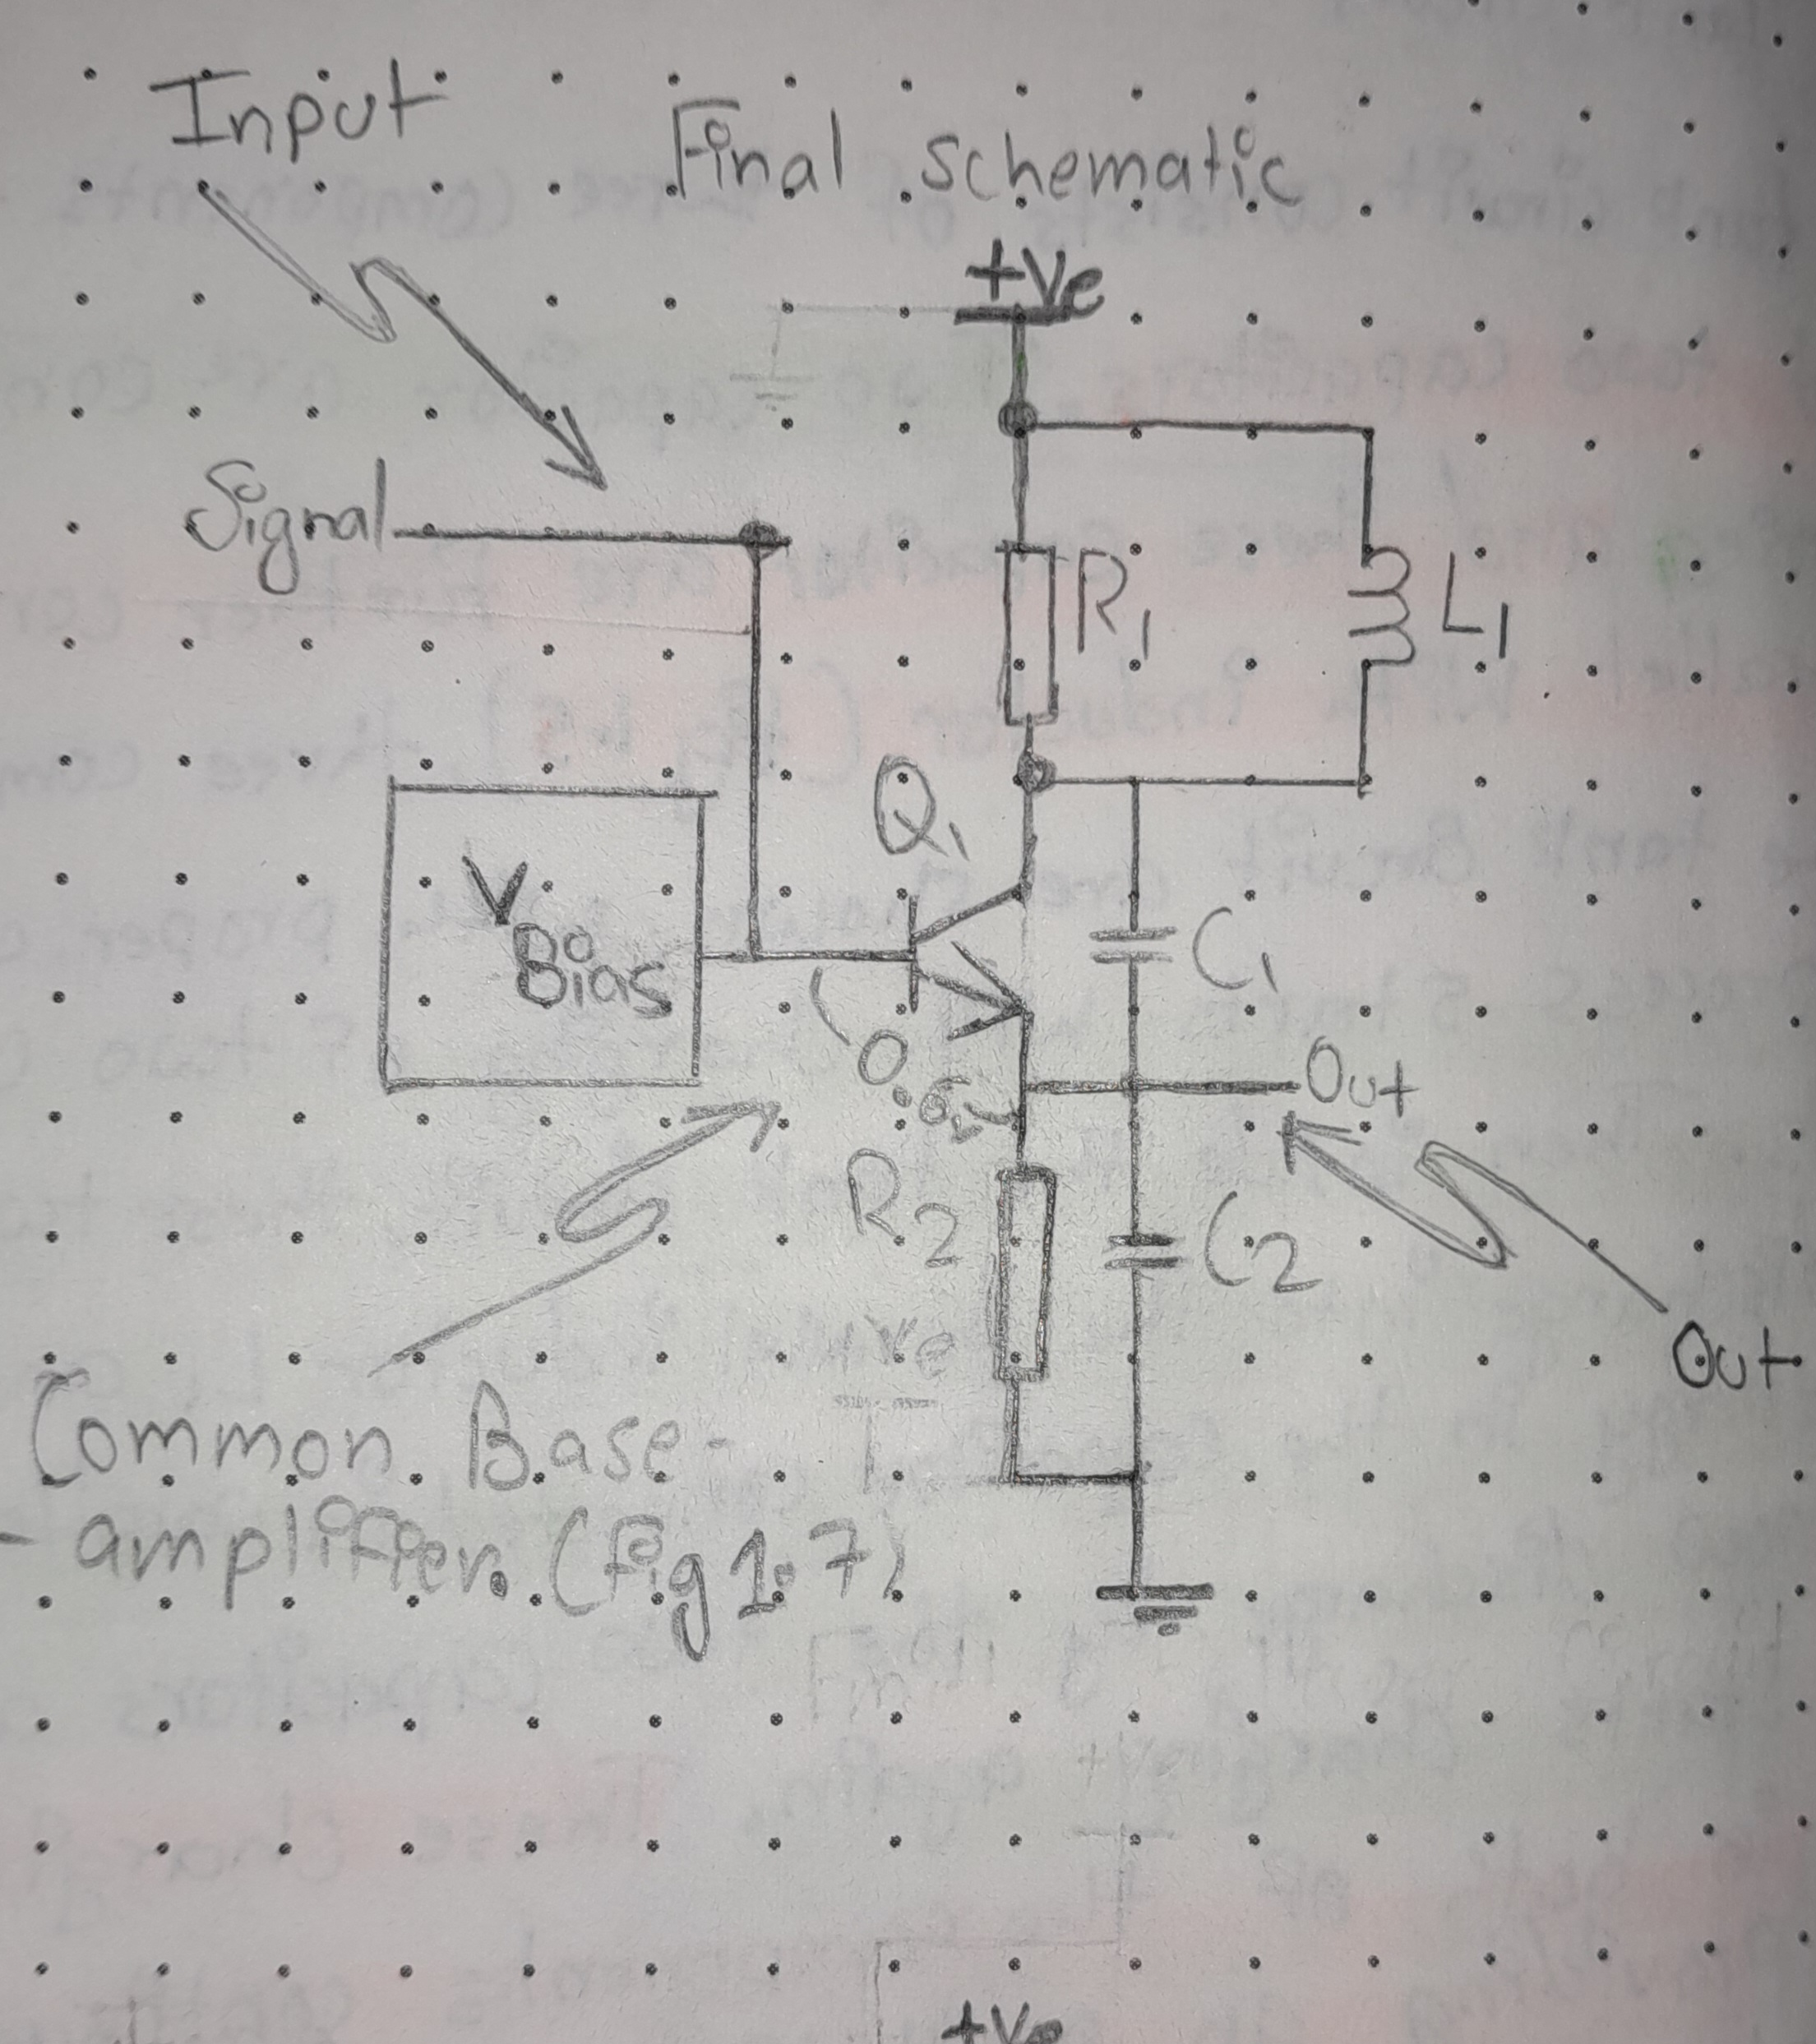 Input
Final schematic
+Ve
Signal
R1
L1
Q1
VBias
C1
0.6v
Out
R2
C2
+Ve
Out
Common Base-
- amplifier. (Fig 1.7)
+Ve